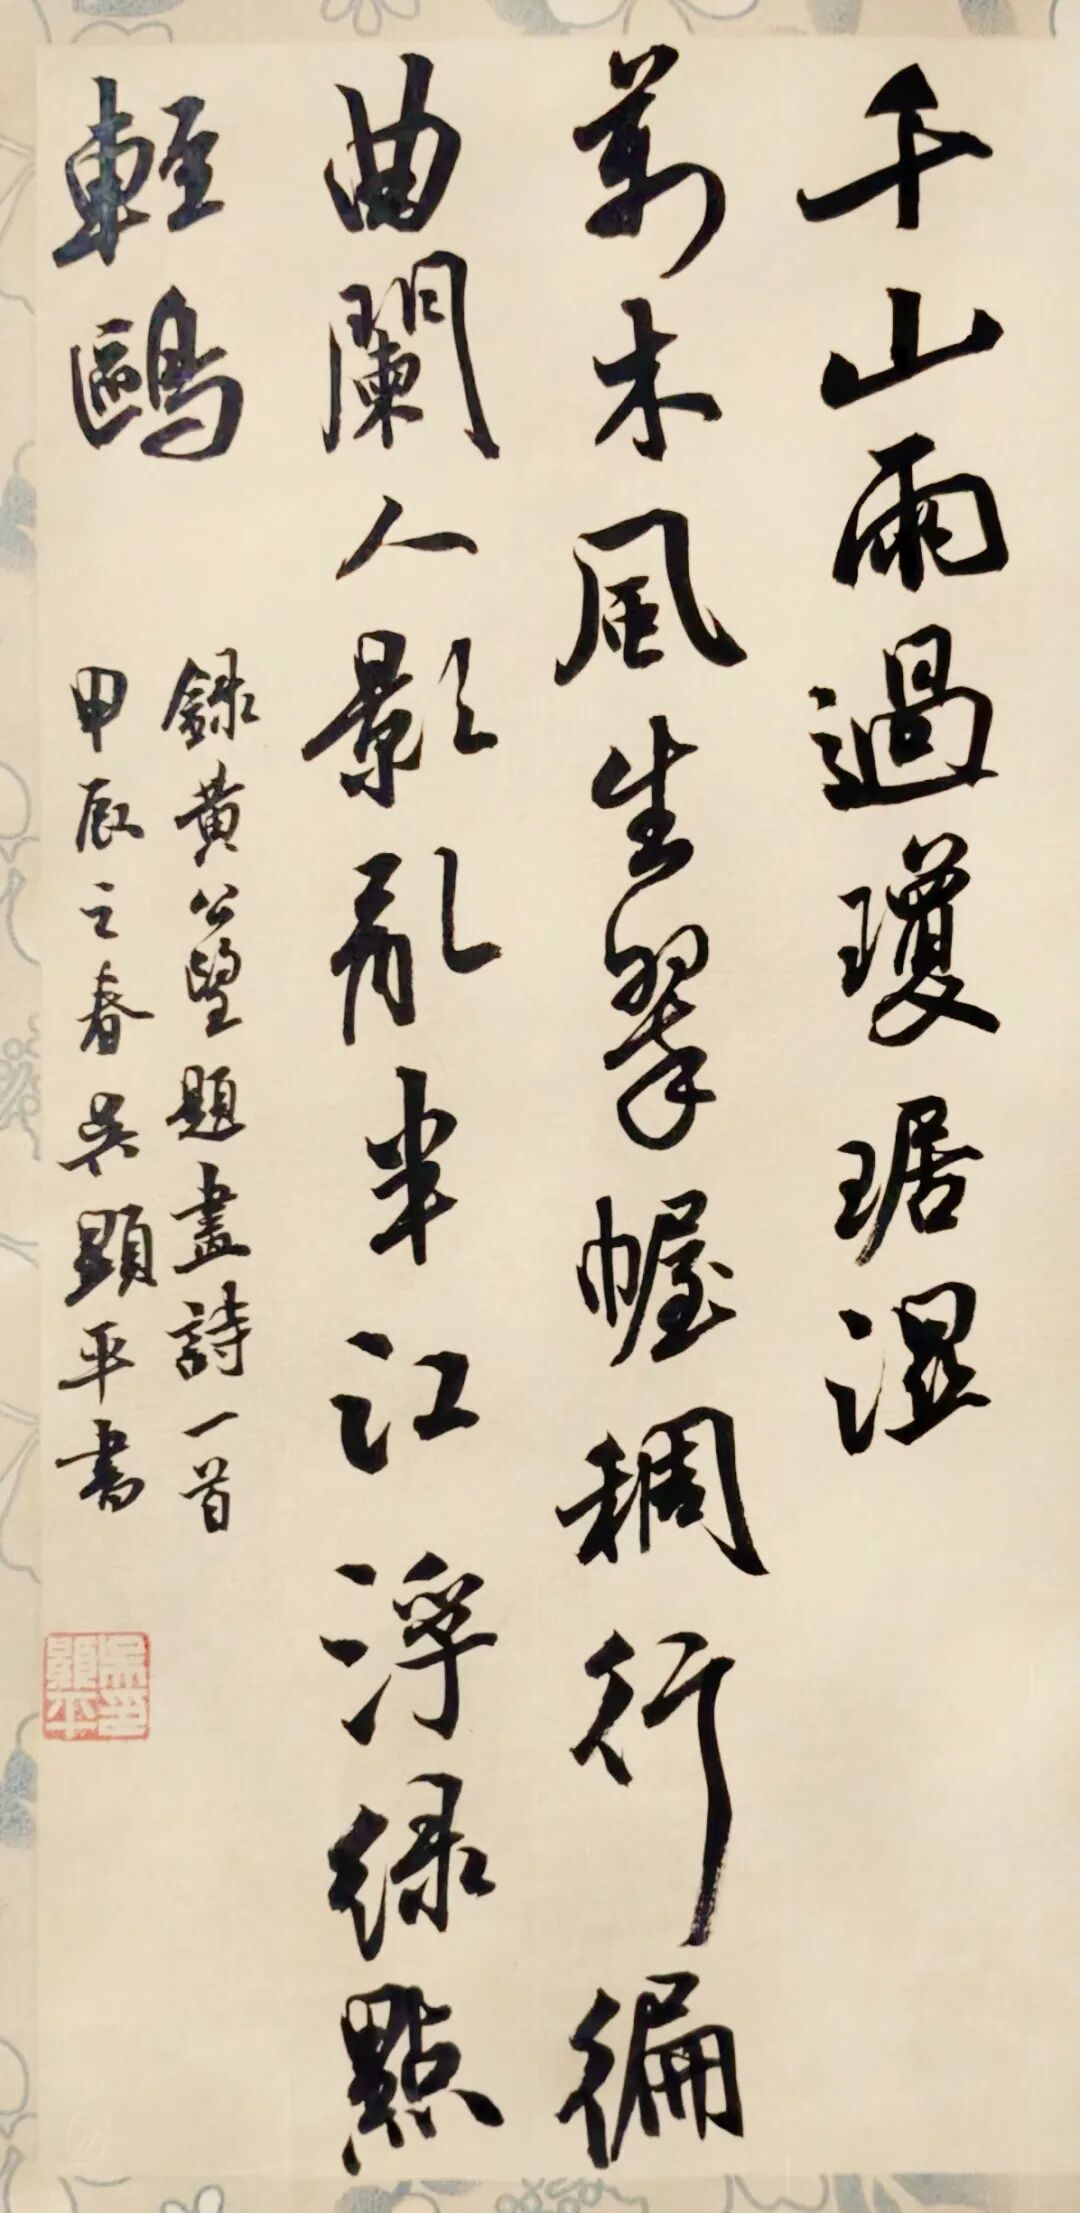 千山雨過瓊琚濕
萬木風生翠幄稠行徧
曲闌人影亂半江浮綠點
輕鷗
錄黃公望題畫詩一首
甲辰之春吳顯平書
吳顯平印